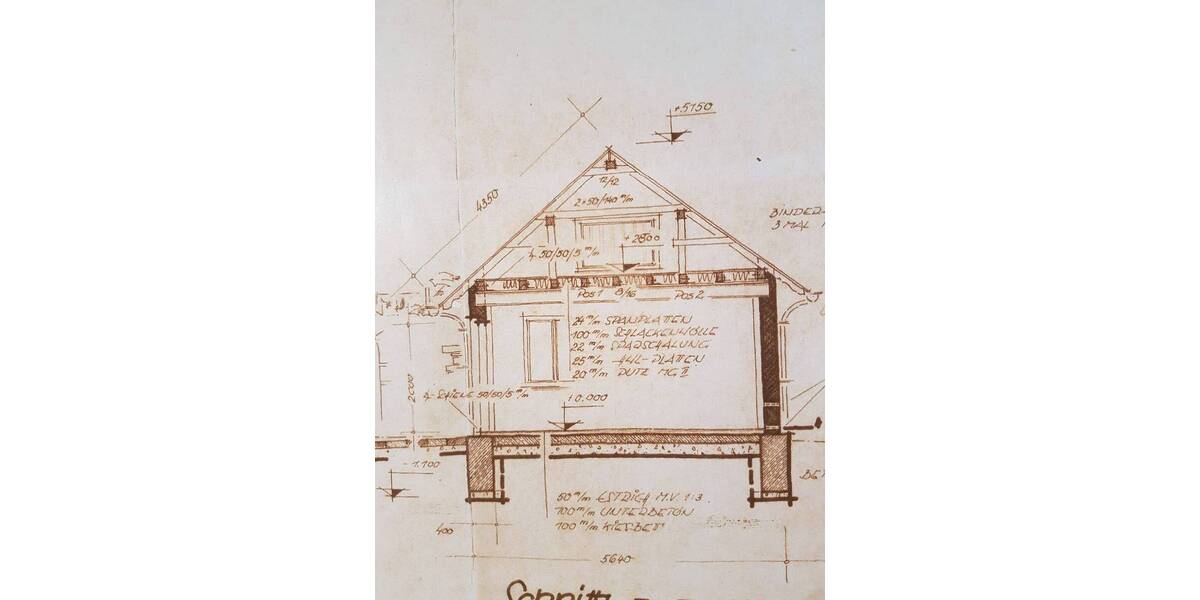 +5150
4350
12/12
2×50/140 m/m
BINDER-
3 MAL
+2800
50/50/5 m/m
POS 1 8/16 POS 2
24 m/m SPANPLATTEN
100 m/m SCHLACKENWOLLE
22 m/m SPARSCHALUNG
25 m/m HWL-PLATTEN
20 m/m PUTZ MG II
2000
SCHIENE 50/50/5 m/m
±0.000
-1.100
50 m/m ESTRICH M.V. 1:3
100 m/m UNTERBETON
100 m/m KIESBETT
400
5640
Schnitt